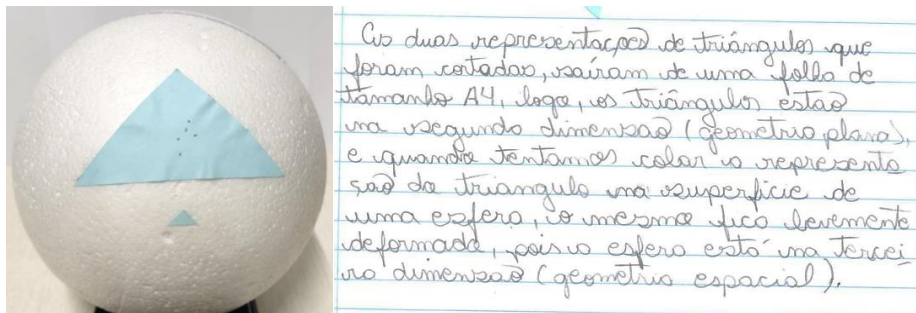 As duas representações de triângulos que
foram cortadas, saíram de uma folha de
tamanho A4, logo, os triângulos estão
na segunda dimensão (geometria plana),
e quando tentamos colar a representa
ção do triangulo na superfície de
uma esfera, o mesmo fica levemente
deformado, pois a esfera está na tercei
ra dimensão (geometria espacial).